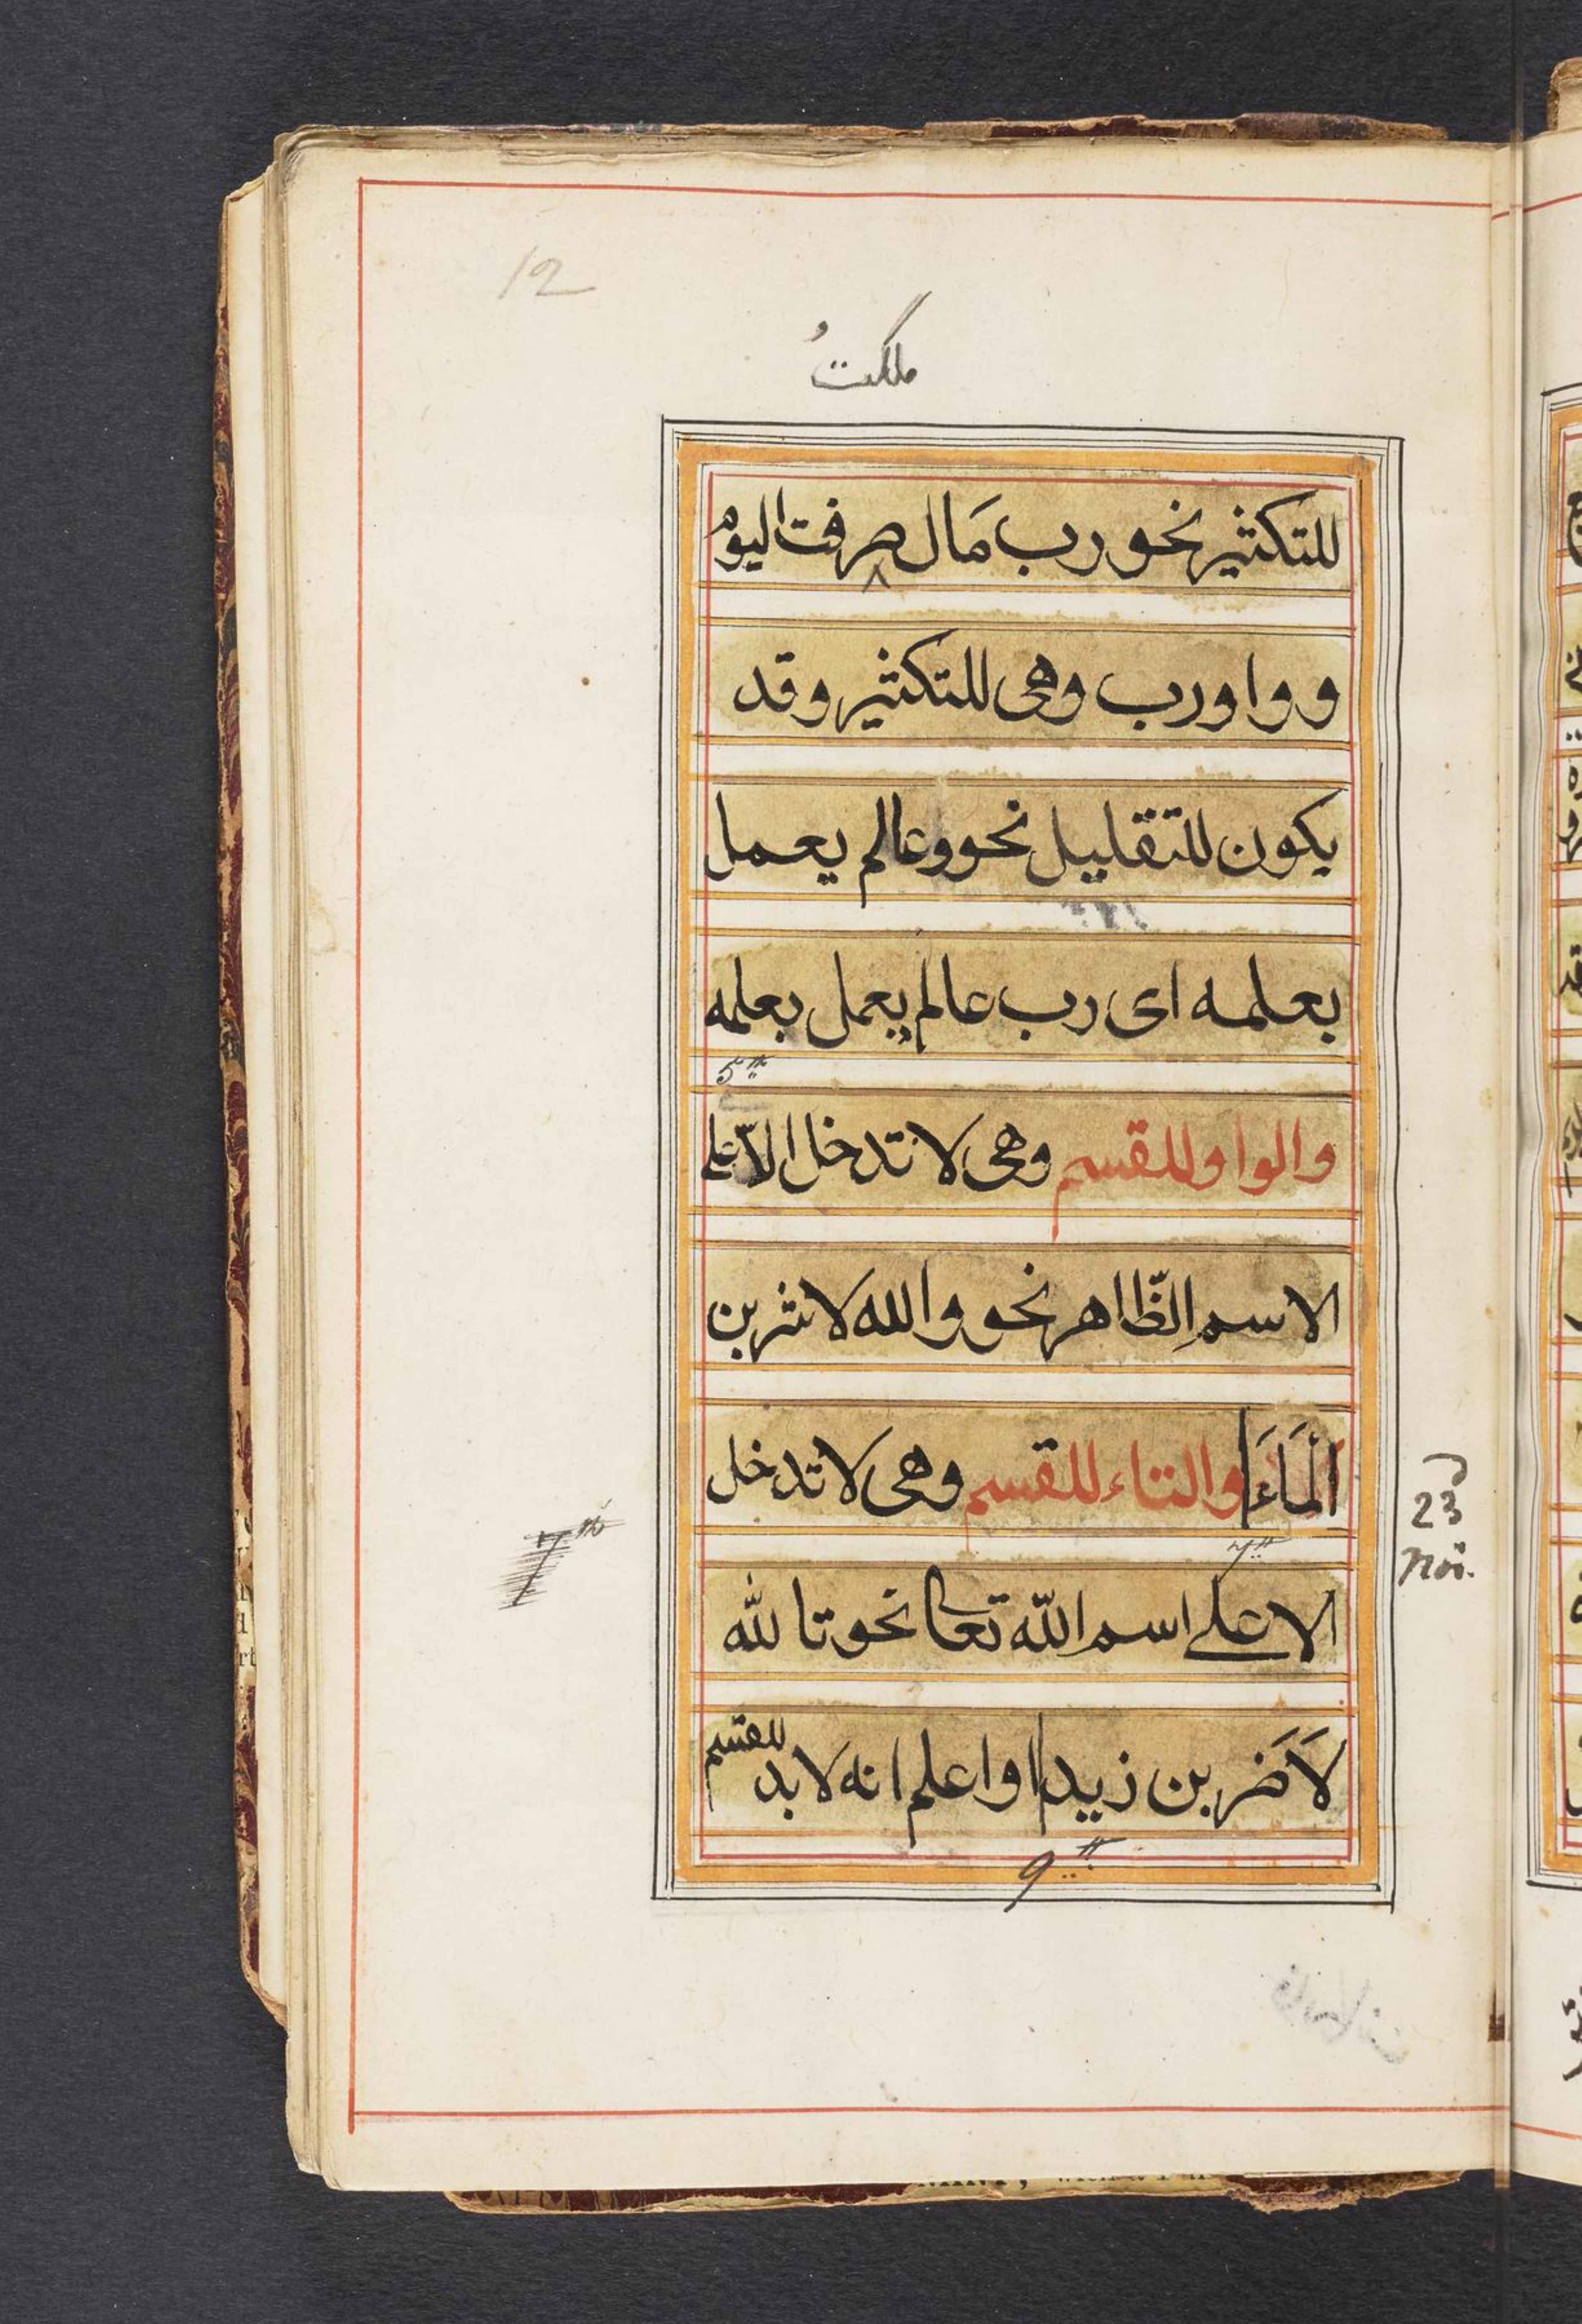 12
ملكتُ
للتكثير نحو رب مَال صرفت اليوم
و واو رب وهى للتكثير وقد
يكون للتقليل نحو وعالم يعمل
بعلمه اى رب عالم يعمل بعلمه
5th
والواو للقسم وهى لا تدخل الّا على
الاسمِ الظّاهر نحو والله لاشربن
الْمَاءَ والتاء للقسم وهى لا تدخل
23
Nov.
7th
7th
الا على اسم اللّه تعالى نحو تاللّه
لَاَضربن زيدا واعلم انه لابد للقسم
9th